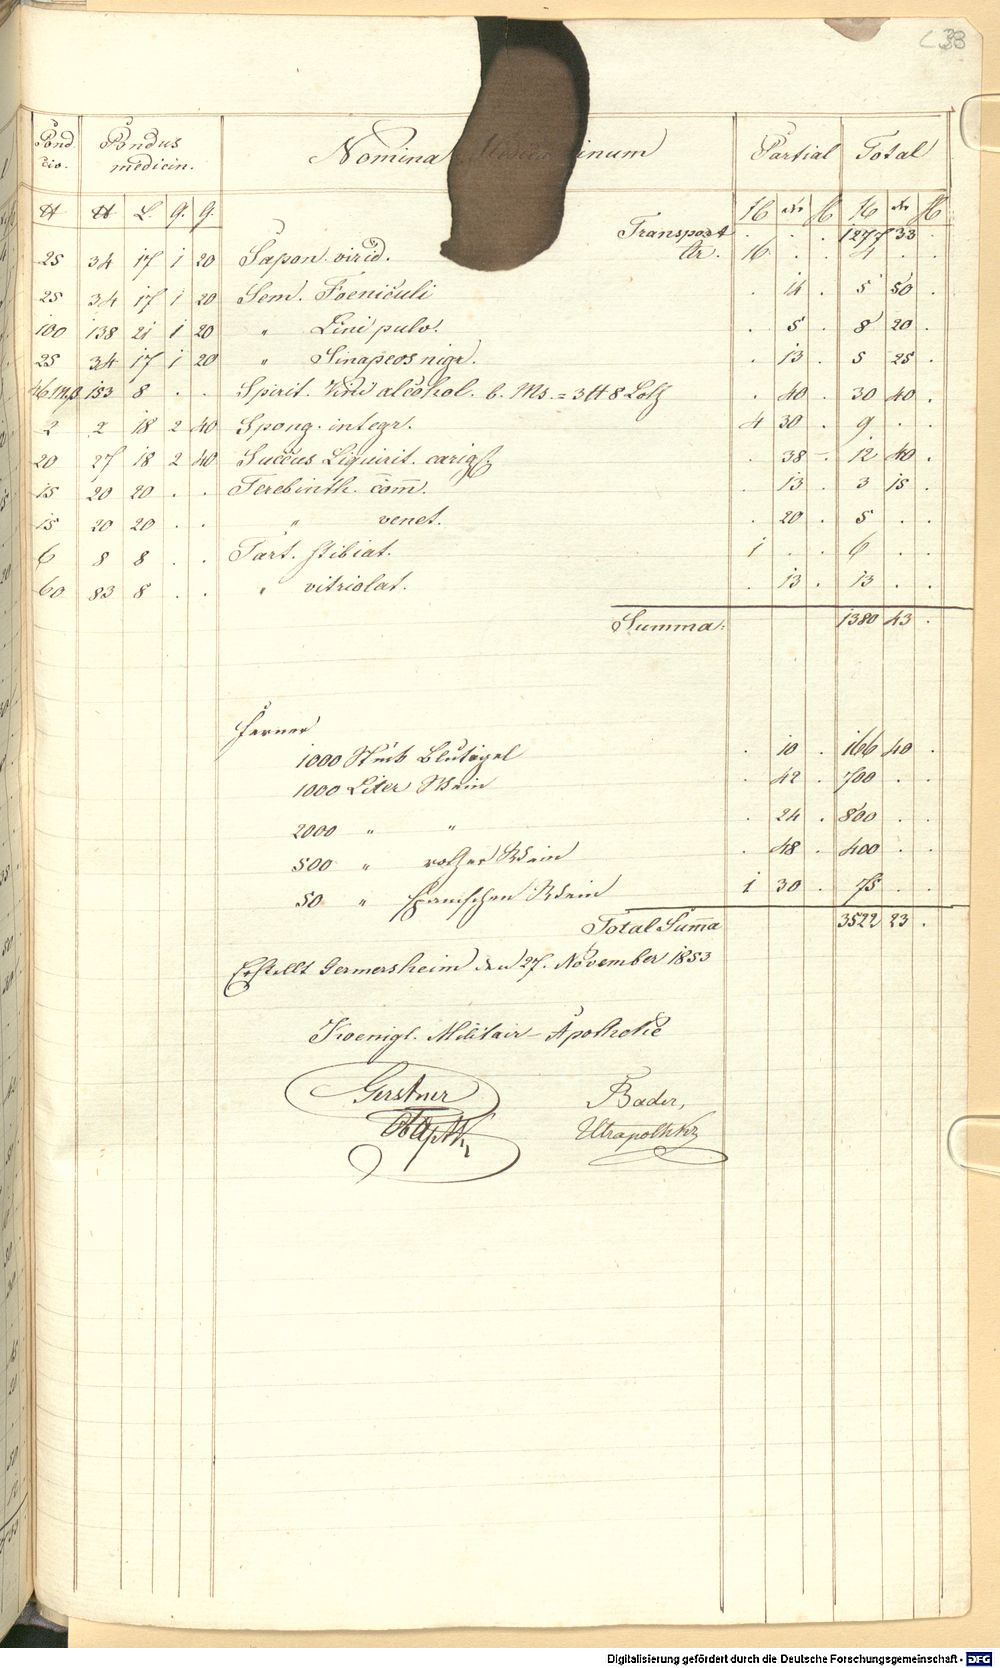 33
Pond. civ. Pondus medicin. Nomina Medicaminum Partial Total
℔ ℔ L. q. g. fl kr fl kr
Transport . . . 1277 33 .
25 34 17 1 20 Sapon. virid. Ctr. 16 . . 4 . .
25 34 17 1 20 Sem. Foeniculi . 14 . 5 50 .
100 138 21 1 20 " Lini pulv. . 5 . 8 20 .
25 34 17 1 20 " Sinapeos nigr. . 13 . 5 25 .
46 Mß. 153 8 . . Spirit. Vini alcohol. b. Ms. = 3 ℔ 8 Loth . 40 . 30 40 .
2 2 18 2 40 Spong. integr. 4 30 . 9 . .
20 27 18 2 40 Succus Liquirit. . 38 . 12 40 .
15 20 20 . . Terebinth. com̅. . 13 . 3 15 .
15 20 20 . . " venet. . 20 . 5 . .
6 8 8 . . Tart. stibiat. 1 . . 6 . .
60 83 8 . . " vitriolat. . 13 . 13 . .
Summa: 1380 43 .
Ferner
1000 Stück Blutigel . 10 . 166 40 .
1000 Liter Wein . 42 . 700 . .
2000 " " . 24 . 800 . .
500 " rother Wein . 48 . 400 . .
50 " spanischen Wein 1 30 . 75 . .
Total Sum̅a 3522 23 .
Erstellt Germersheim den 27. November 1853
Koenigl. Militair-Apotheke
Gerstner Bader,
ObApth. Utrapothkr
Digitalisierung gefördert durch die Deutsche Forschungsgemeinschaft - DFG